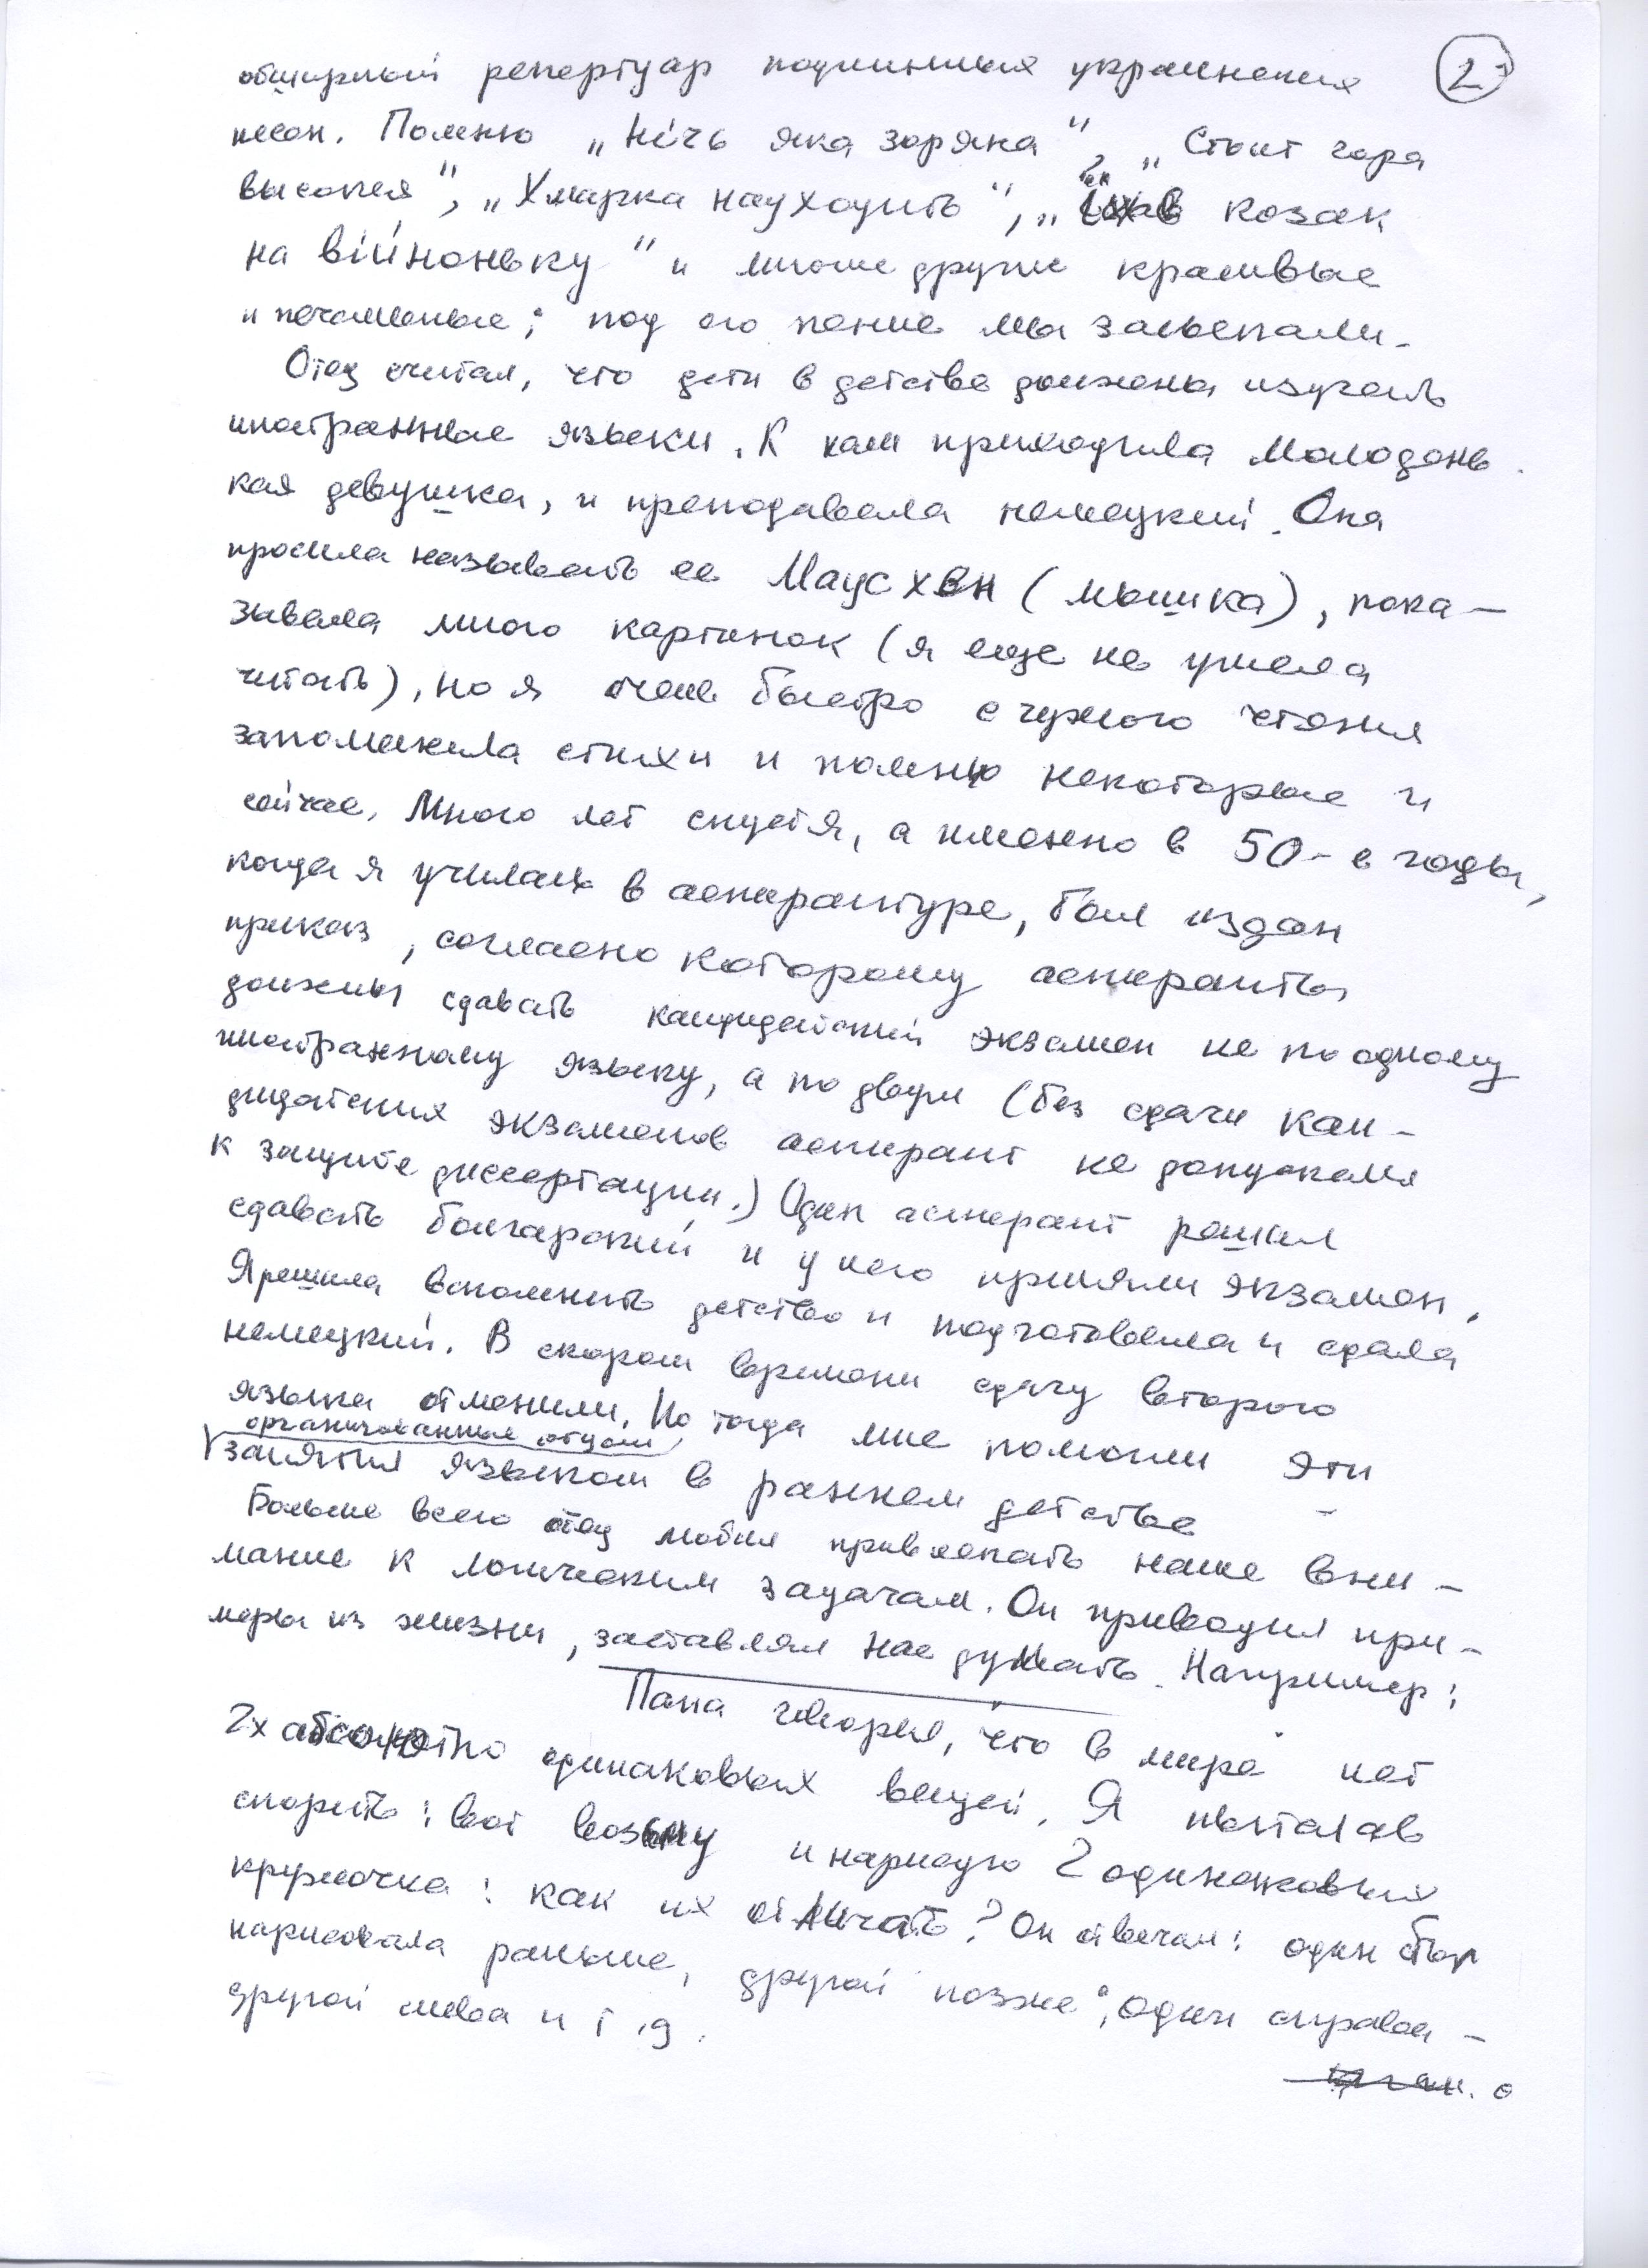 2
обширный репертуар подлинных украинских
песен. Помню „Нічь яка зоряна“, „Стоит гора
высокая“, „Хмарка надходить“, „Їхав козак
на війноньку“ и многие другие красивые
и печальные; под его пение мы засыпали.
Отец считал, что дети в детстве должны изучать
иностранные языки. К нам приходила молодень
кая девушка, и преподавала немецкий. Она
просила называть ее Маусхен (мышка), пока–
зывала много картинок (я еще не умела
читать), но я очень быстро с чужого чтения
запоминала стихи и помню некоторые и
сейчас. Много лет спустя, а именно в 50-е годы,
когда я училась в аспирантуре, был издан
приказ, согласно которому аспиранты
должны сдавать кандидатский экзамен не по одному
иностранному языку, а по двум (без сдачи кан–
дидатских экзаменов аспирант не допускался
к защите диссертации.) Один аспирант решил
сдавать болгарский и у него приняли экзамен.
Я решила вспомнить детство и подготовила и сдала
немецкий. В скором времени сдачу второго
языка отменили. Но тогда мне помогли эти
организованные отцом
занятия языком в раннем детстве
Больше всего отец любил привлекать наше вни–
мание к логическим задачам. Он приводил при–
меры из жизни, заставлял нас думать. Например:
Папа говорил, что в мире нет
2х абсолютно одинаковых вещей. Я пыталась
спорить: вот возьму и нарисую 2 одинаковых
кружочка: как их отличать? Он отвечал: один был
нарисовала раньше, другой позже; один справа –
другой слева и т.д.